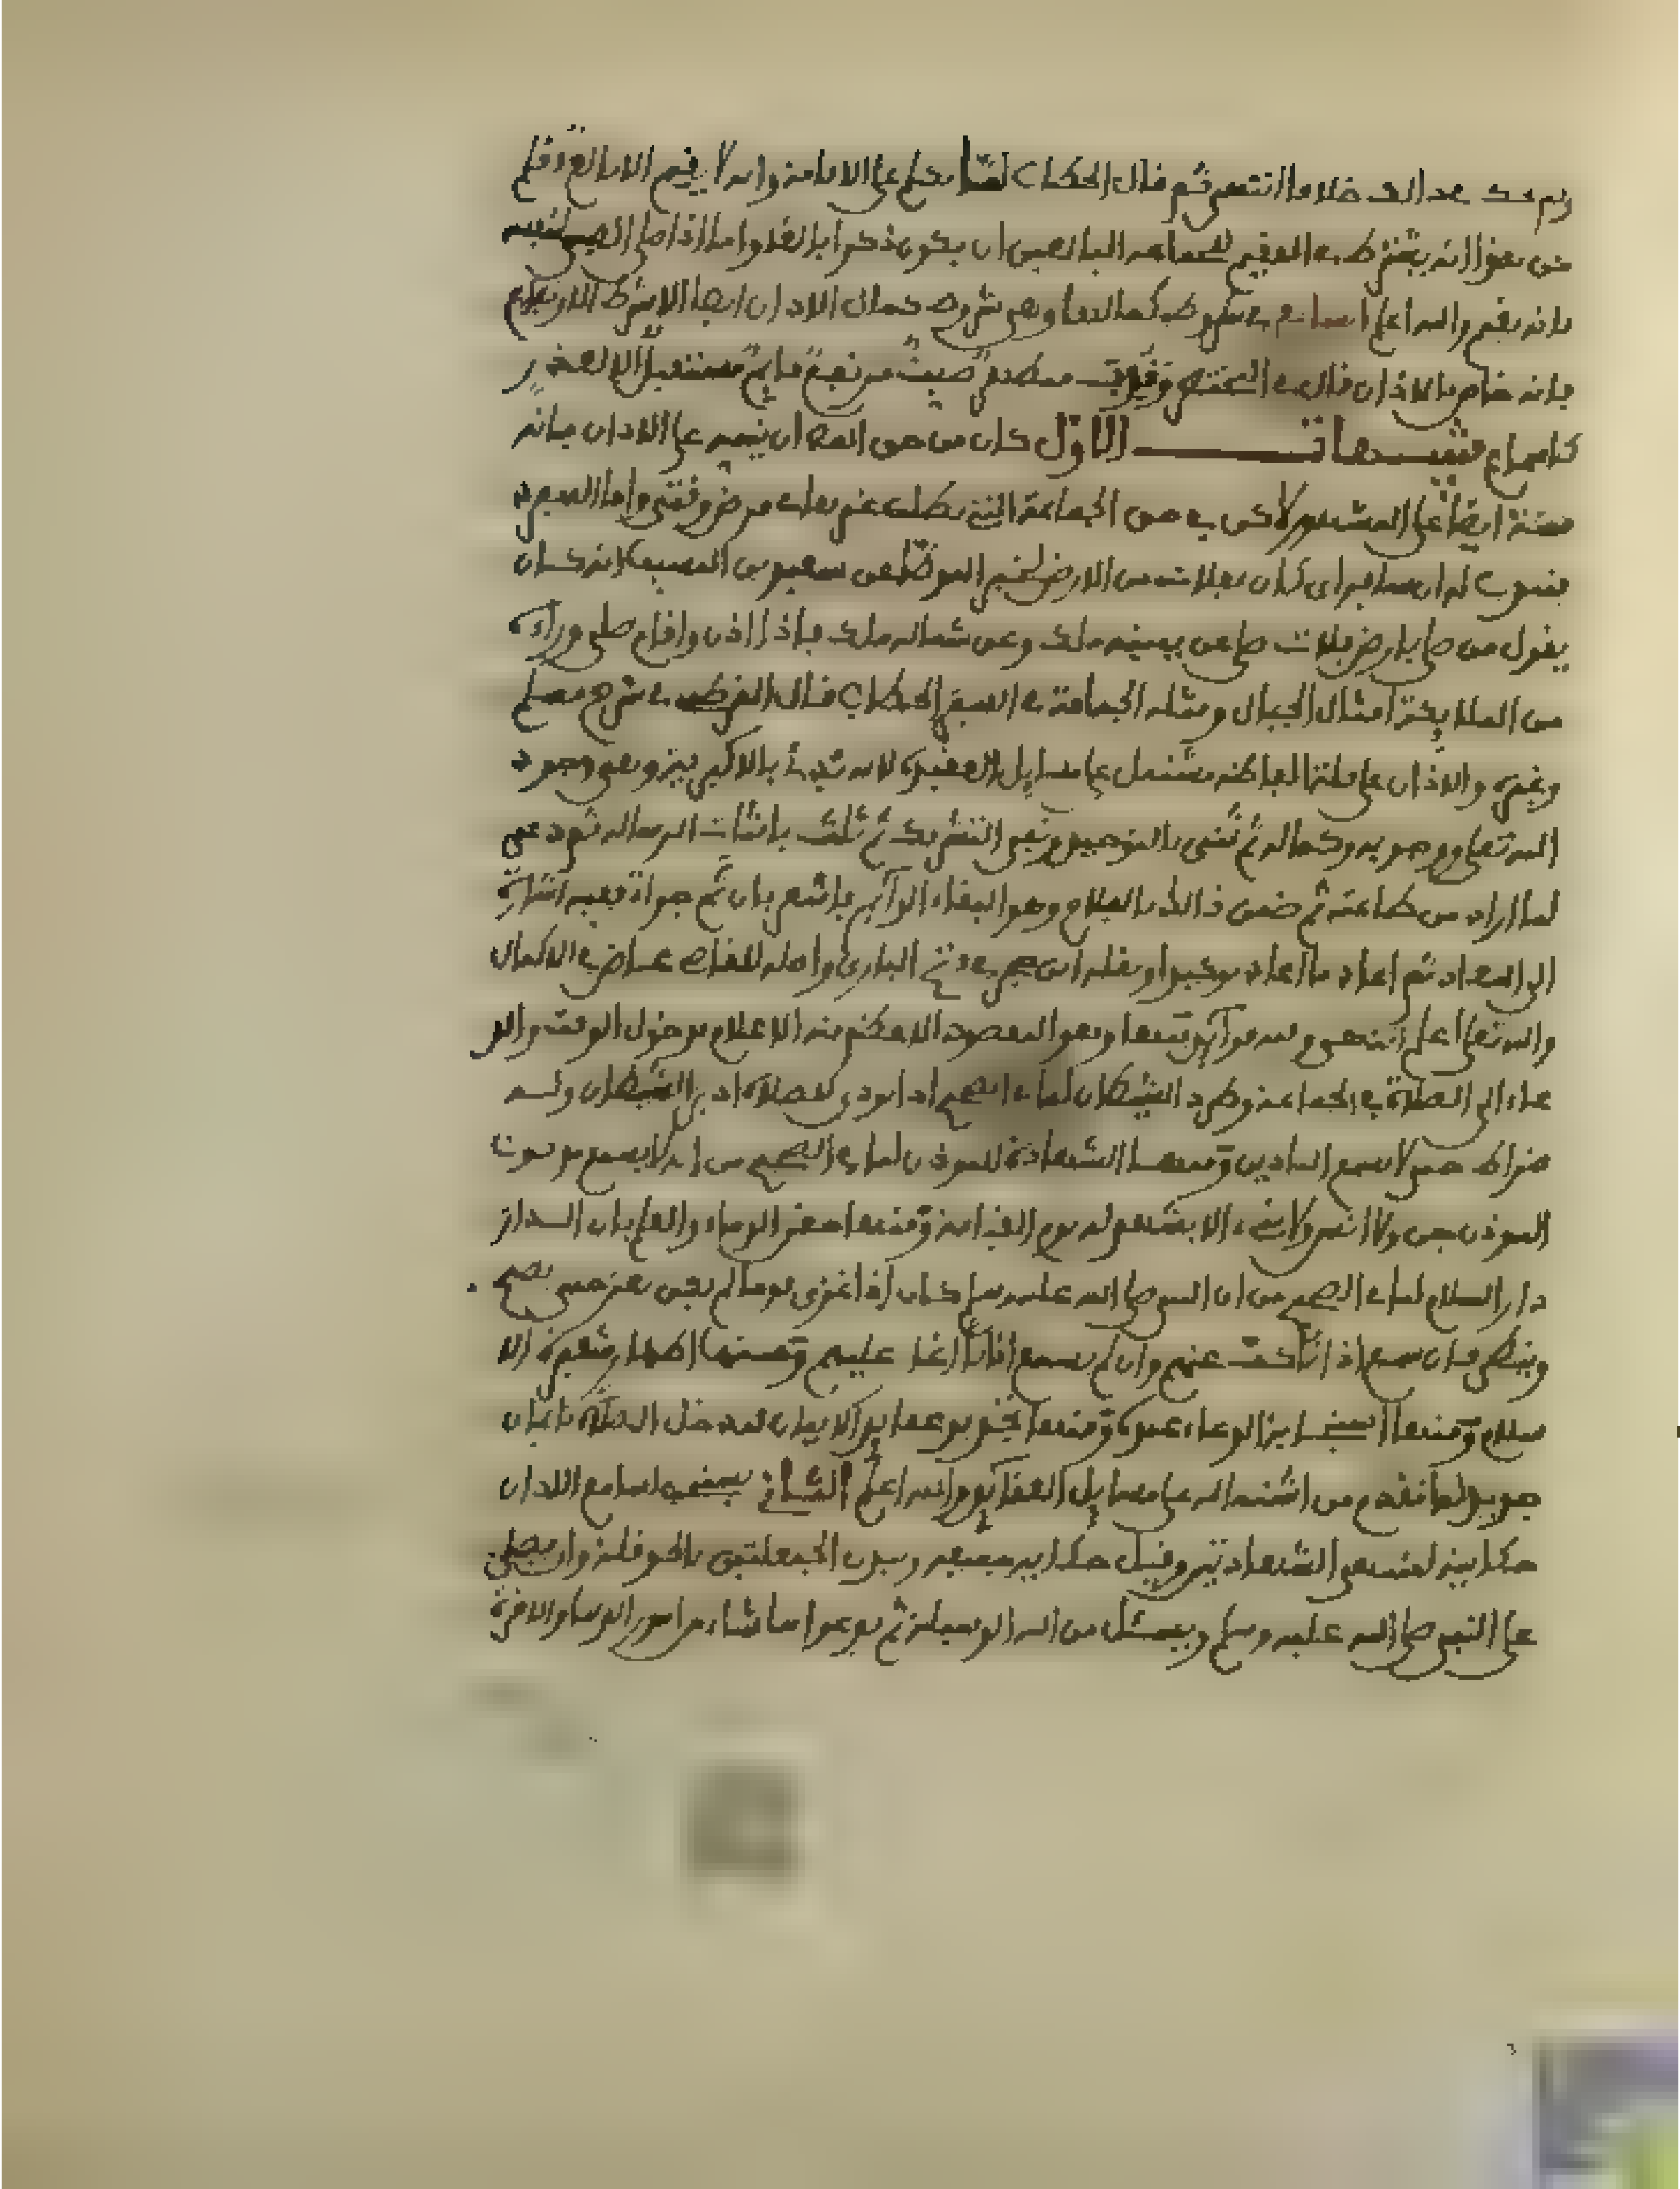 ولم يحك عبد الحق خلافا انتهى ثم قال الحطاب لما تكلم على الاقامة وانه لا يقيم الا بالغ وقع
من بعض انه يشترط في المقيم لجماعة البالغين ان يكون ذكرا بالغا واما اذا صلى الصبي لنفسه
فانه يقيم والله اعلم في شروط كمال وهي شروط كمال الاذان ايضا الا شرط
فانه خاص بالاذان قال في المختصر وندب متطهر صيت مرتفع قائم مستقبل الا لعذر
كاسماع تنبيهات الاول كان من حق ان ينبه على الاذان فانه
سنة ايضا على المشهور لاكن في حق الجماعة التي تطلب غيرها في فرض وقتي واما المنفرد
فيندب له ان سافر اي كان بفلات من الارض لخبر الموطا عن سعيد بن المسيب انه كان
يقول من صلى بارض فلات صلى عن يمينه ملك وعن شماله ملك فاذا اذن واقام صلى وراءه
من الملايكة امثال الجبال ومثله الجماعة في السفر الحطاب قال القرطبي في شرح مسلم
وغيره والاذان على قلة الفاظه مشتمل على مسايل العقيدة لانه بدأ بالاكبرية وهي وجود
الله تعلى ووجوبه وكماله ثم ثنى بالتوحيد ونفي التشريك ثم ثلث باثبات الرسالة ثم دعى
لما اراد من طاعته ثم ضمن ذالك بالفلاح وهو البقاء الدايم فاشعر بان ثم جزاء ففيه اشارة
الى المعاد ثم اعاد ما اعاد توكيدا ونقله ابن حجر في فتح الباري واصله للقاضي عياض في الاكمال
والله تعلى اعلم انتهى وله فوايد منها وهو المقصود الاعظم منه الاعلام بدخول الوقت والد
عاء الى الصلاة في الجماعة وطرد الشيطان لما في الصحيح اذا نودي للصلاة ادبر الشيطان وله
ضراط حتى لا يسمع التاذين ومنها الشهادة للموذن لما في الصحيح من انه لا يسمع مدى صوت
الموذن جن ولا انس ولا شيء الا يشهد له يوم القيامة ومنها حقن الدماء والعلم بان الدار
دار السلام لما في الصحيح من ان النبي صلى الله عليه وسلم كان اذا غزى قوما لم يكن يغز حتى يصبح
وينظر فان سمع اذانا كف عنهم وان لم يسمع اذانا اغار عليهم ومنها اظهار شعيرة الا
سلام ومنها استجابة الدعاء عنده ومنها تجديد عقايد الايمان لمدخل الصلاة باتقان
لما تقدم من اشتماله على مسايل العقايد والله اعلم الثاني يستحب لسامع الاذان
حكايته لمنتهى الشهادتين وقيل حكايته جميعه ويبدل الحيعلتين بالحوقلة وان يصلي
على النبي صلى الله عليه وسلم ويسئل من الله الوسيلة ثم يدعوا ما شاء من امور الدنيا والاخرة